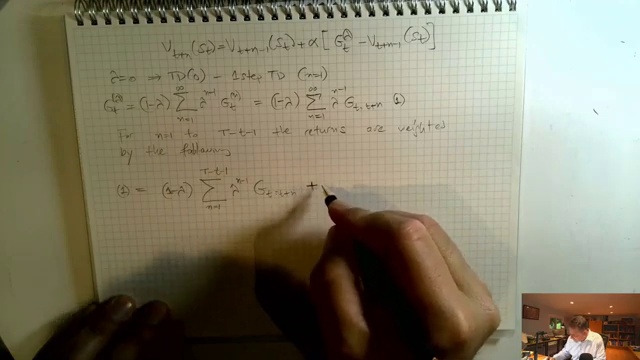 V_{t+n}(S_t) = V_{t+n-1}(S_t) + α [ G_t^λ - V_{t+n-1}(S_t) ]
λ=0 ⇒ TD(0) - 1 step TD (n=1)
G_t^{(λ)} = (1-λ) ∑_{n=1}^{∞} λ^{n-1} G_t^{(n)} = (1-λ) ∑_{n=1}^{∞} λ^{n-1} G_{t:t+n} (1)
For n=1 to T-t-1 the returns are weighted
by the following
(1) = (1-λ) ∑_{n=1}^{T-t-1} λ^{n-1} G_{t:t+n} +